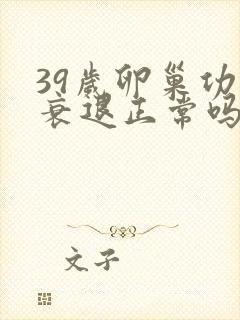 39歲卵巢功
衰退正常吗
文子